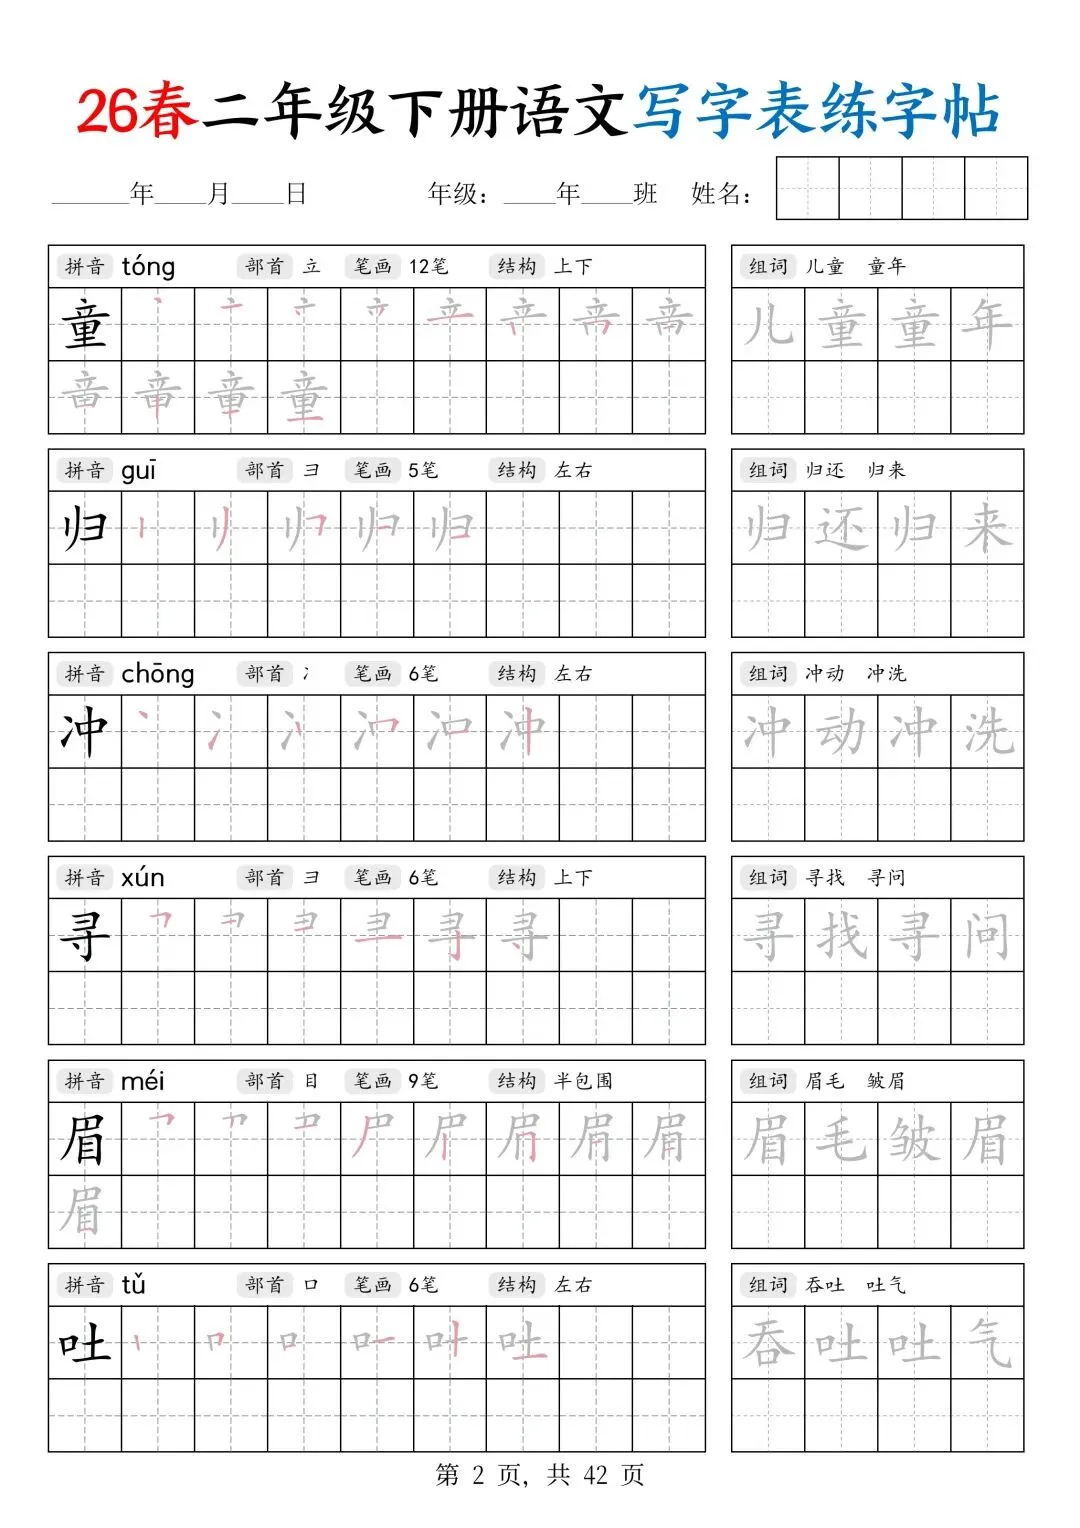 26春二年级下册语文写字表练字帖
______年____月____日 年级：____年____班 姓名：
拼音 tóng 部首 立 笔画 12笔 结构 上下 组词 儿童 童年
童 儿童童年
童
拼音 guī 部首 彐 笔画 5笔 结构 左右 组词 归还 归来
归 归还归来
拼音 chōng 部首 冫 笔画 6笔 结构 左右 组词 冲动 冲洗
冲 冲动冲洗
拼音 xún 部首 彐 笔画 6笔 结构 上下 组词 寻找 寻问
寻 寻找寻问
拼音 méi 部首 目 笔画 9笔 结构 半包围 组词 眉毛 皱眉
眉 眉毛皱眉
眉
拼音 tǔ 部首 口 笔画 6笔 结构 左右 组词 吞吐 吐气
吐 吞吐吐气
第 2 页，共 42 页